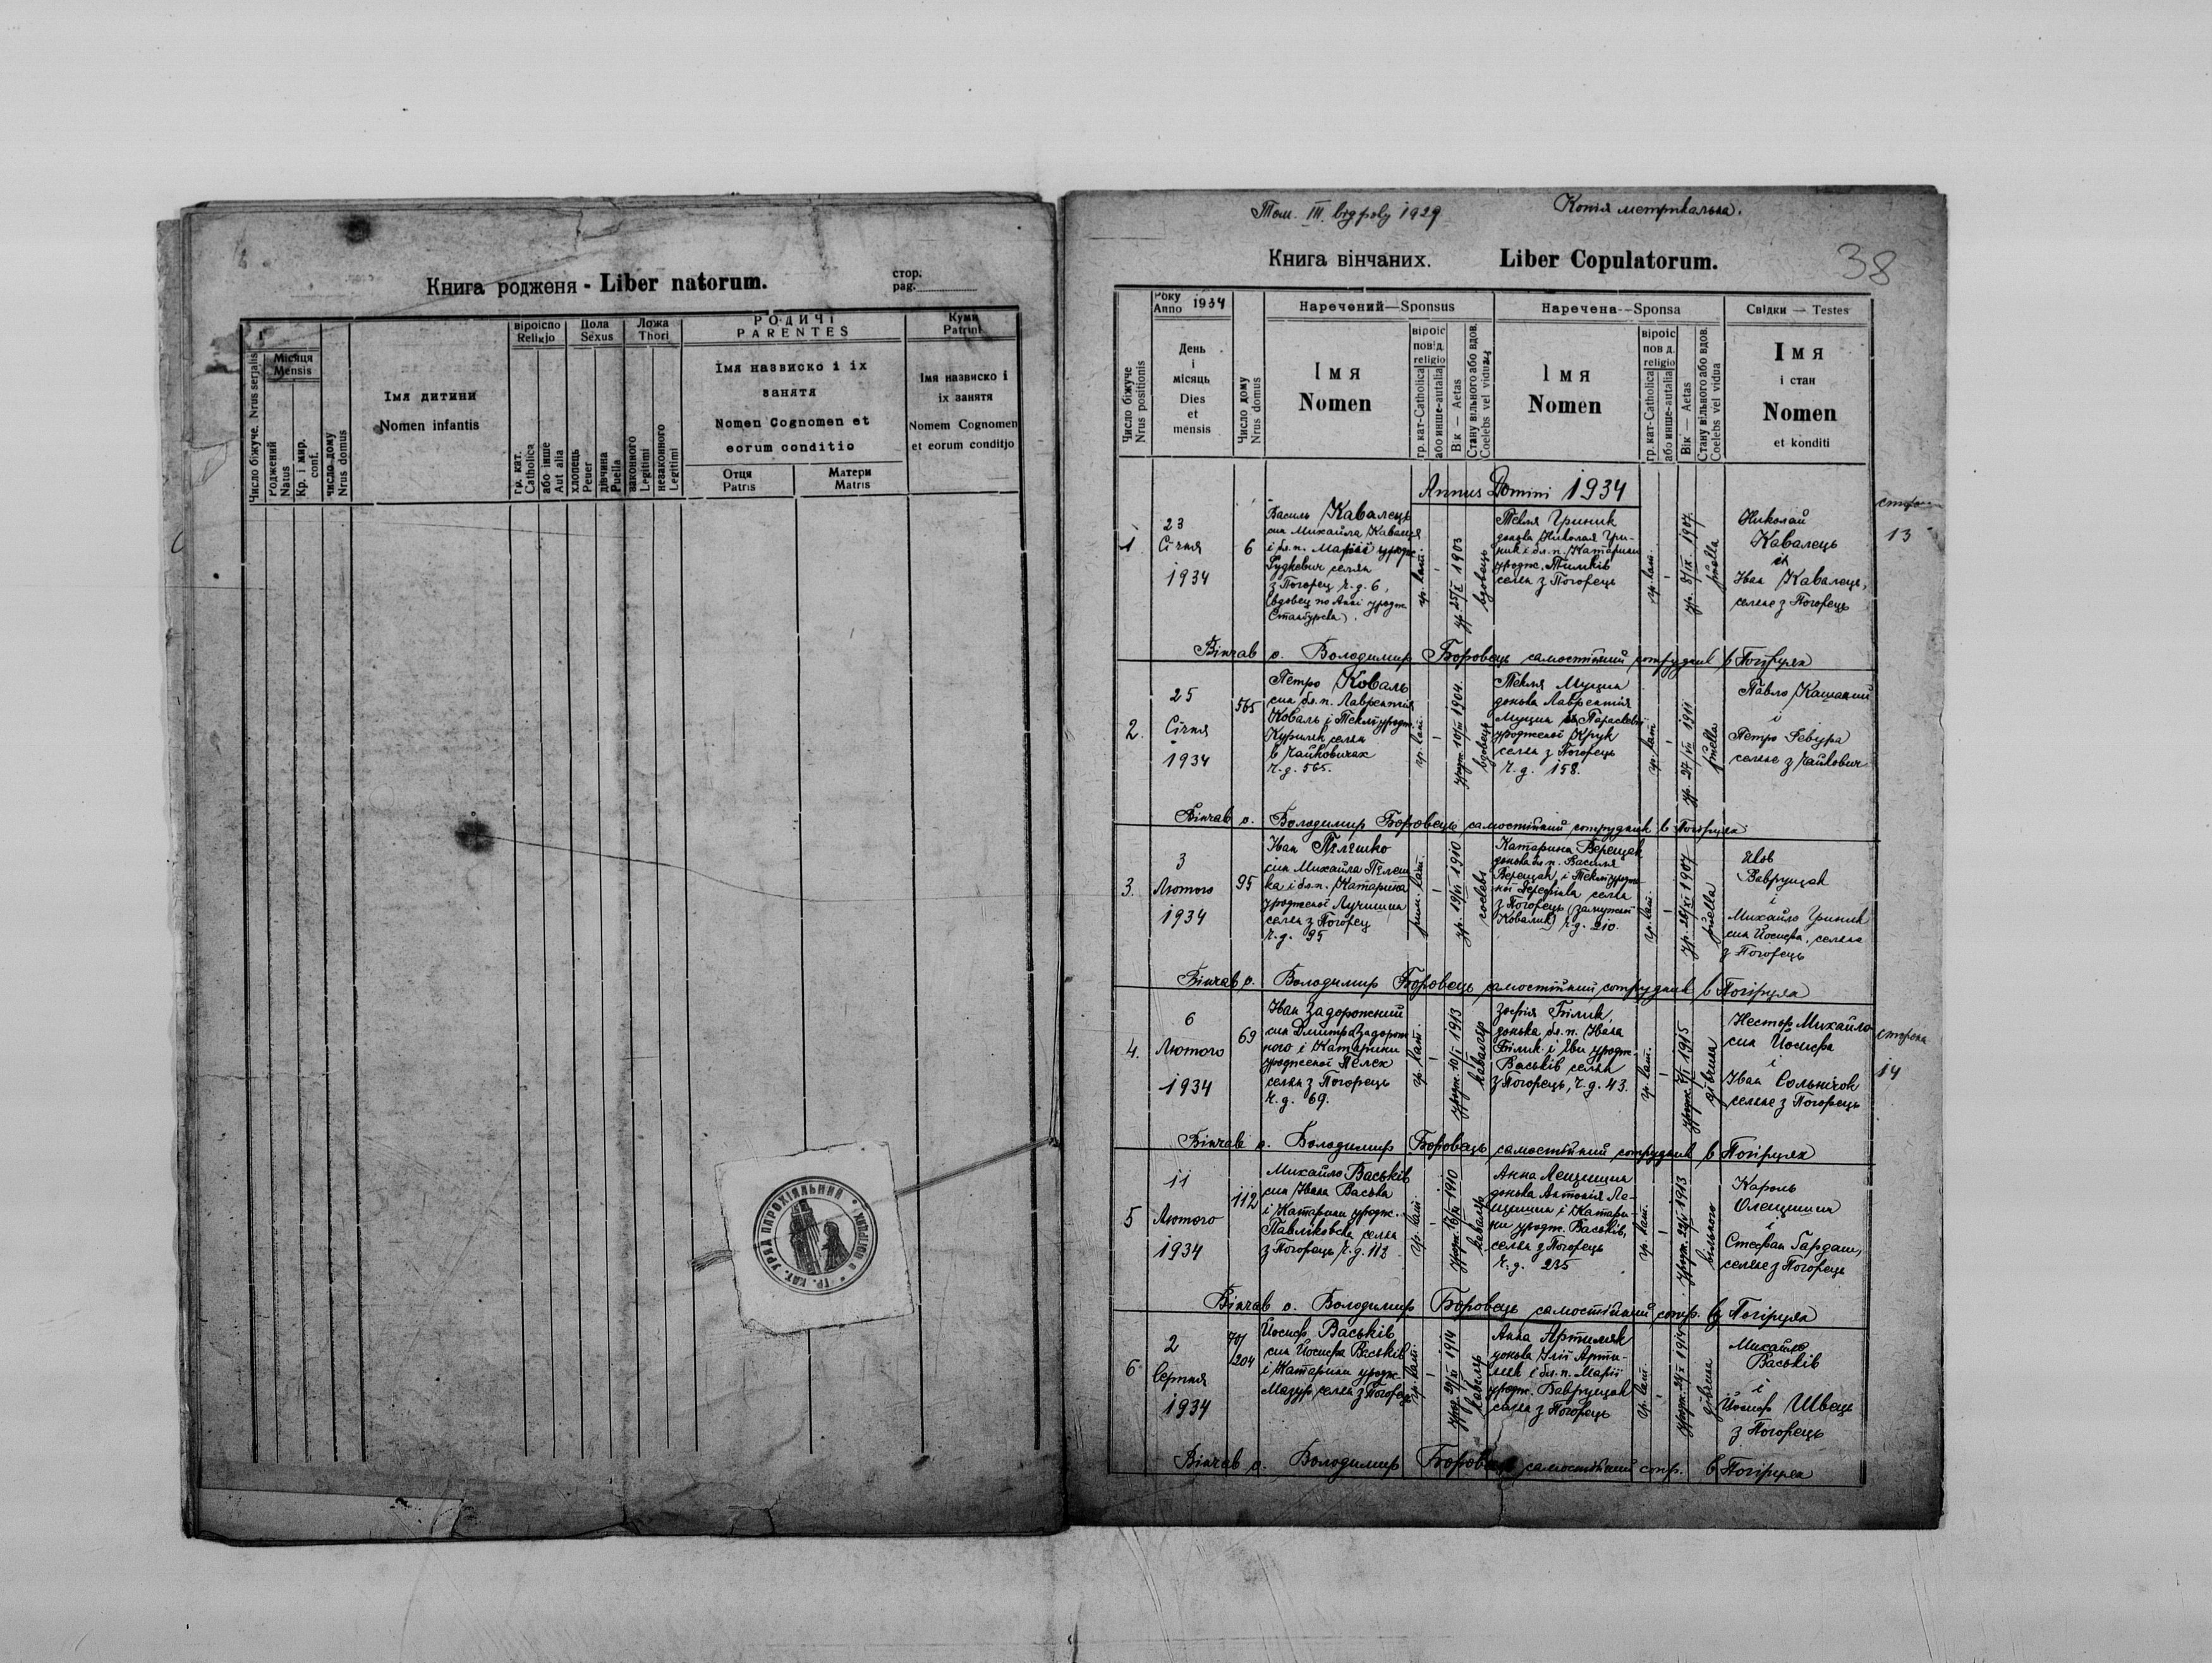 Книга родженя - Liber natorum.
стор.
pag.
Число біжуче. Nrus serjalis
Місяця
Mensis
Роджений
Natus
Кр. і мир.
conf.
число дому
Nrus domus
Імя дитини
Nomen infantis
віроіспо
Religjo
гр. кат.
Catholica
або інше
Aut alia
Пола
Sexus
хлопець
Peuer
дівчина
Puella
Ложа
Thori
законного
Legitimi
незаконного
Legitimi
РОДИЧІ
PARENTES
Імя назвиско і іх
занятя
Nomen Cognomen et
eorum conditio
Отця
Patris
Матери
Matris
Куми
Patrini
Імя назвиско і
іх занятя
Nomem Cognomen
et eorum conditjo
Том. III. від року 1929
Копія метрикальна.
38
Книга вінчаних. Liber Copulatorum.
Число біжуче
Nrus positionis
Року
Anno 1934
День
і
місяць
Dies
et
mensis
Число дому
Nrus domus
Наречений—Sponsus
Імя
Nomen
віроіс
повід.
religio
гр. кат-Catholica
або инше-autalia
Вік — Aetas
Стану вільного або вдов.
Coelebs vel viduus
Наречена--Sponsa
Імя
Nomen
віроіс
пов д.
religio
гр. кат-Catholica
або инше-autalia
Вік — Aetas
Стану вільного або вдов.
Coelebs vel vidua
Свідки — Testes
Імя
і стан
Nomen
et konditi
Annus Domini 1934
1
23
Січня
1934
6
Василь Кавалець
син Михайла Кавалця
і бл.п. Марії уродж.
Гудкевич селян
з Погорец ч.д. 6,
(вдовец по Анні уродж.
гр. кат.
ур. 25/X 1903
вдовець
Текля Гриник
донька Николая Гри-
ник і бл.п. Катарини
уродж. Тимків
селян з Погорець
гр. кат.
ур. 3/IX. 1907.
puella
Николай
Кавалець
et
Іван Кавалець,
селяне з Погорець
13
Вінчав о. Володимир Боровець самостійний сотрудник в Погірцях
2.
25
Січня
1934
565
Петро Коваль
син бл.п. Лаврентія
Коваль і Теклі уродж.
Куриляк селян
в Чайковичах
ч.д. 565.
гр. кат.
вдовець
Текля Мущин
донька Лаврентія
Мущин і Параскевії
уродженої Крук
селян з Погорець
ч.д. 158.
гр. кат.
ур. 27/VII 1911
puella
Павло Кащаний
і
Петро Ревура
селяне з Чайкович
Вінчав о. Володимир Боровець самостійний сотрудник в Погірцях
3.
3
Лютого
1934
95
Іван Пелешко
син Михайла Пелеш
ка і бл.п. Катарина
уродженої Лучишин
селян з Погорец
ч.д. 95
рим. кат.
ур. 19/VI 1910
coelebs
Катарина Верещак
донька бл.п. Василя
Верещак, і Теклі уродже
селян
з Погорець (замужної
Ковалик) ч.д. 210.
гр. кат.
puella
Яков
Вавринчак
і
Михайло Гриник
син Йосифа, селяне
з Погорець
Вінчав о. Володимир Боровець самостійний сотрудник в Погірцях
4.
6
Лютого
1934
69
Іван Задорожний
син Дмитра Задорож
ного і Катарини
уродженої Пелех
селян з Погорець
ч.д. 69.
гр. кат.
уродж. 10/I 1913
кавалєр
Зофія Білик,
донька бл.п. Івана
Білик і Еви уродж.
Васьків селян
з Погорець, ч.д. 43.
гр. кат.
дівчина
Нестор Михайло
син Йосифа
і
Іван Сольничок
селяне з Погорець
сторона
14
Вінчав о. Володимир Боровець самостійний сотрудник в Погірцях
5
11
Лютого
1934
112
Михайло Васьків
син Івана Васька
і Катарини уродж.
Павліковска селян
з Погорець ч.д. 112
гр. кат.
кавалєр
Анна Лещишин
донька Антонія Ле-
щишин і Катари-
ни уродж. Васьків,
селян з Погорець
ч.д. 235
гр. кат.
вільного
Кароль
Олещишин
і
Стефан Гардаш,
селяне з Погорець
Вінчав о. Володимир Боровець самостійний сотр. в Погірцях
6
2
Серпня
1934
70/
204
Йосиф Васьків
син Йосифа Васьків
і Катарини уродж.
Мазур селян з Погорець
гр. кат.
кавалєр
Анна Артимяк
донька Ілії Арти-
мяк і бл.п. Марії
уродж. Вавринчак
селян з Погорець
гр. кат.
дівчина
Михайло
Васьків
і
Йосиф Швець
з Погорець
Вінчав о. Володимир Боровець самостійний сотр. в Погірцях